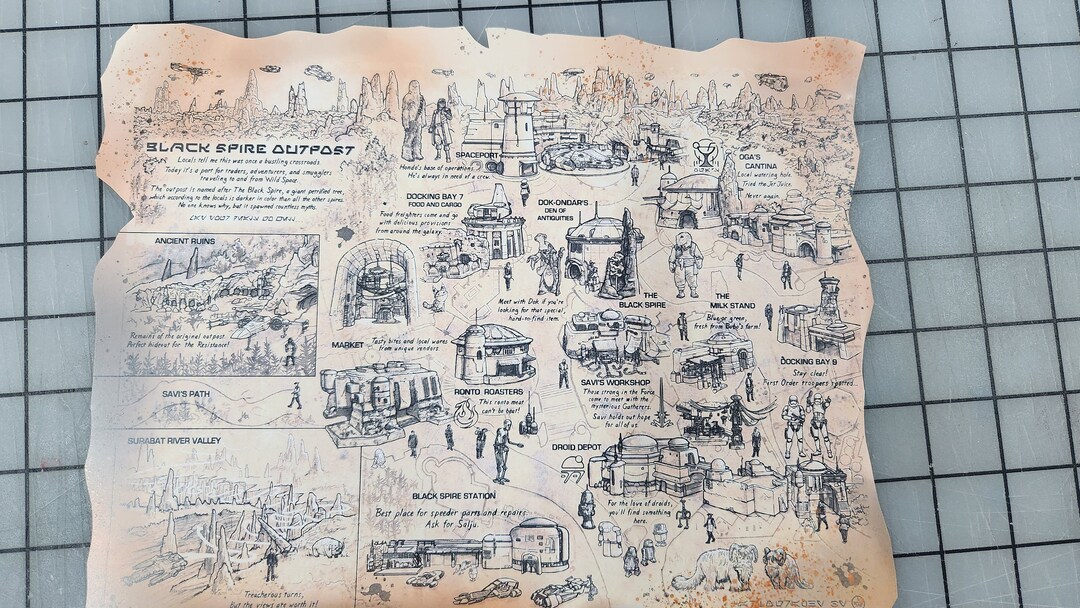 BLACK SPIRE OUTPOST
Locals tell me this was once a bustling crossroads.
Today it's a port for traders, adventurers, and smugglers
traveling to and from Wild Space.
The outpost is named after The Black Spire, a giant petrified tree,
which according to the locals is darker in color than all the other spires.
No one knows why, but it spawned countless myths.
SPACEPORT
Hondo's base of operations.
He's always in need of a crew.
OGA'S
CANTINA
Local watering hole.
Tried the Jet Juice.
Never again.
DOCKING BAY 7
FOOD AND CARGO
Food freighters come and go
with delicious provisions
from around the galaxy.
DOK-ONDAR'S
DEN OF
ANTIQUITIES
Meet with Dok if you're
looking for that special,
hard-to-find item.
ANCIENT RUINS
Remains of the original outpost.
Perfect hideout for the Resistance!
THE
BLACK SPIRE
THE
MILK STAND
Blue or green,
fresh from Bubo's farm!
MARKET
Tasty bites and local wares
from unique vendors.
DOCKING BAY 9
Stay clear!
First Order troopers spotted...
RONTO ROASTERS
This ronto meat
can't be beat!
SAVI'S WORKSHOP
Those strong in the Force
come to meet with the
mysterious Gatherers.
Savi holds out hope
for all of us.
SAVI'S PATH
SURABAT RIVER VALLEY
Treacherous turns,
but the views are worth it!
DROID DEPOT
For the love of droids,
you'll find something
here.
BLACK SPIRE STATION
Best place for speeder parts and repairs.
Ask for Salju.